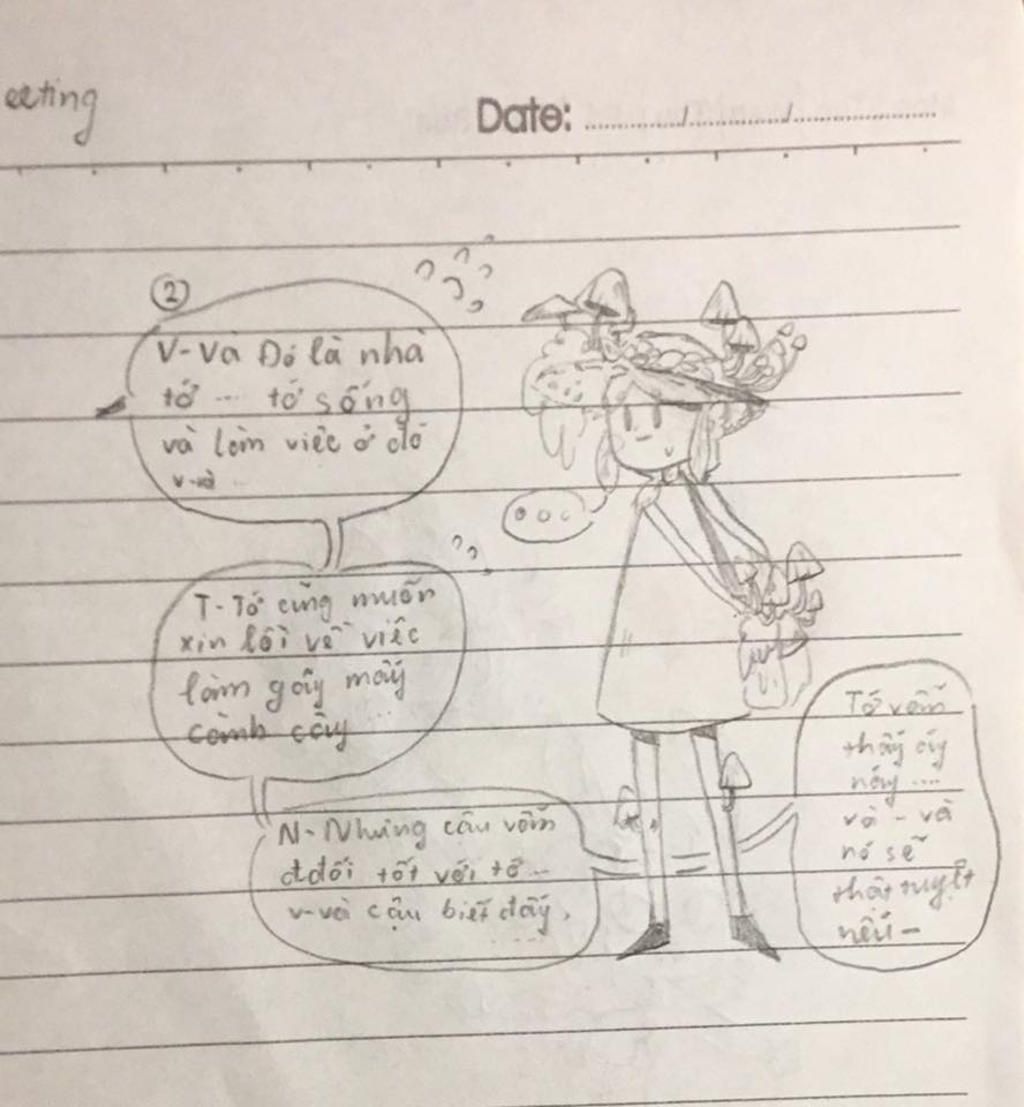 eeting
Date: ............/............/..................
2
V-Và Đó là nhà
tớ ... tớ sống
và làm việc ở đó
v-và ...
...
T-Tớ cũng muốn
xin lỗi về việc
làm gãy mấy
cành cây
N-Nhưng cậu vẫn
đđối tốt với tớ...
v-và cậu biết đấy,
...
Tớ vẫn
thấy áy
náy ....
và - và
nó sẽ
thật tuyệt
nếu -